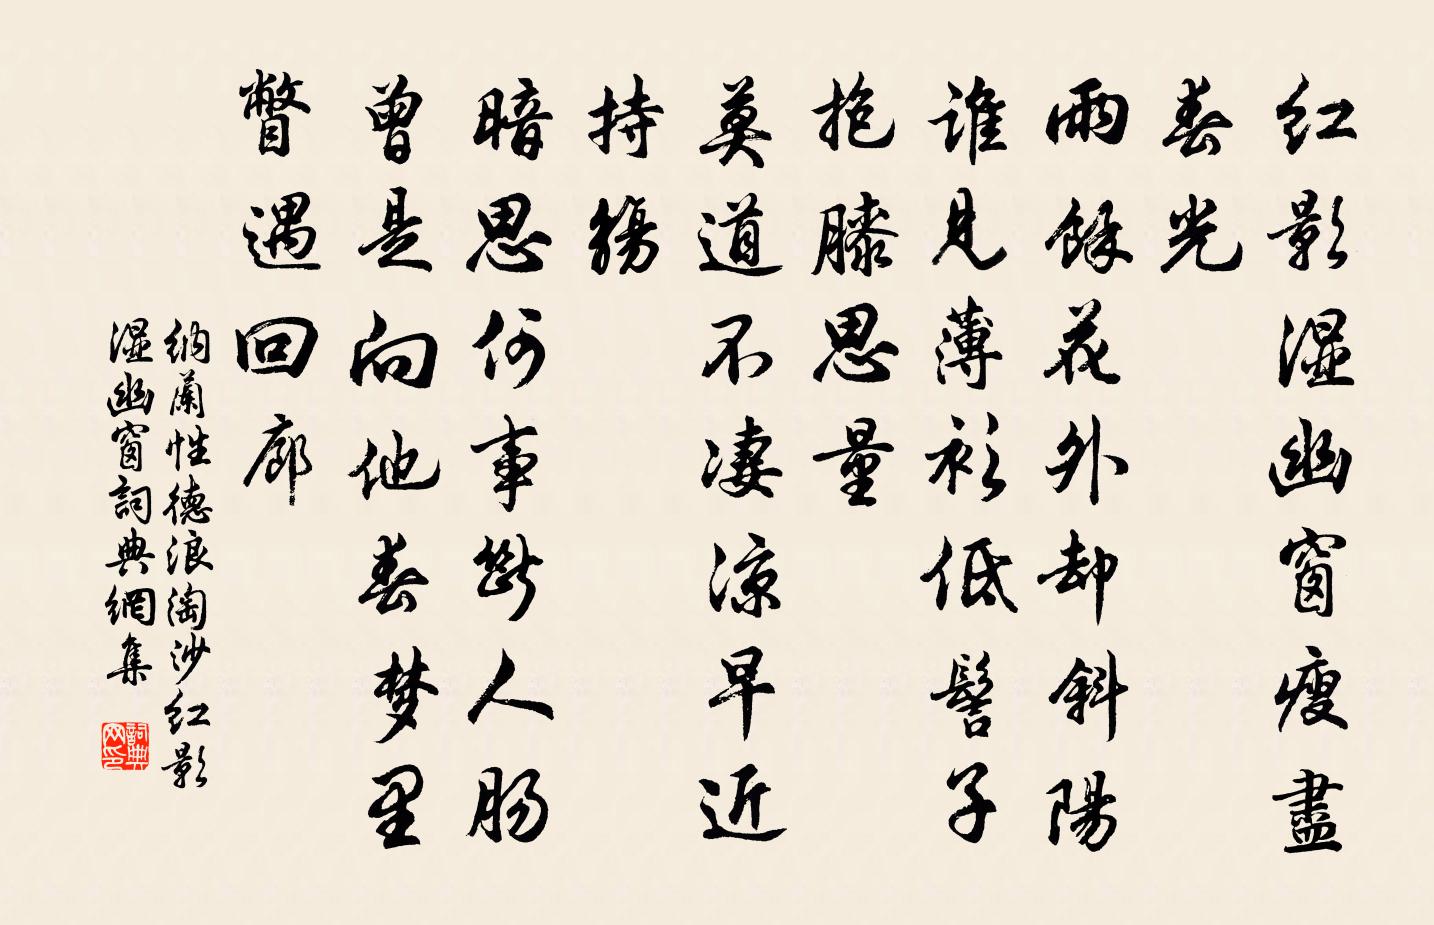 红影湿幽窗瘦盡
春光
雨餘花外却斜陽
誰見薄衫低髻子
抱膝思量
莫道不凄凉早近
持觴
暗思何事斷人肠
曾是向他春梦里
瞥遇回廊
纳蘭性德浪淘沙红影
湿幽窗詞典網集
詞典
网印